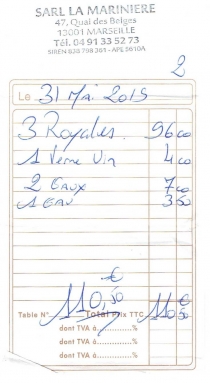 SARL LA MARINIERE
47, Quai des Belges
13001 MARSEILLE
Tél. 04 91 33 52 73
SIREN 838 798 361 - APE 5610A
2
Le 31 Mai 2015
3 Royales. 96 00
1 Verre Vin 4 00
2 Eaux 7 00
1 Eau 3 50
110,50 €
Table N° Total Prix TTC 110 € 50
dont TVA à ............%
dont TVA à ............%
dont TVA à ............%